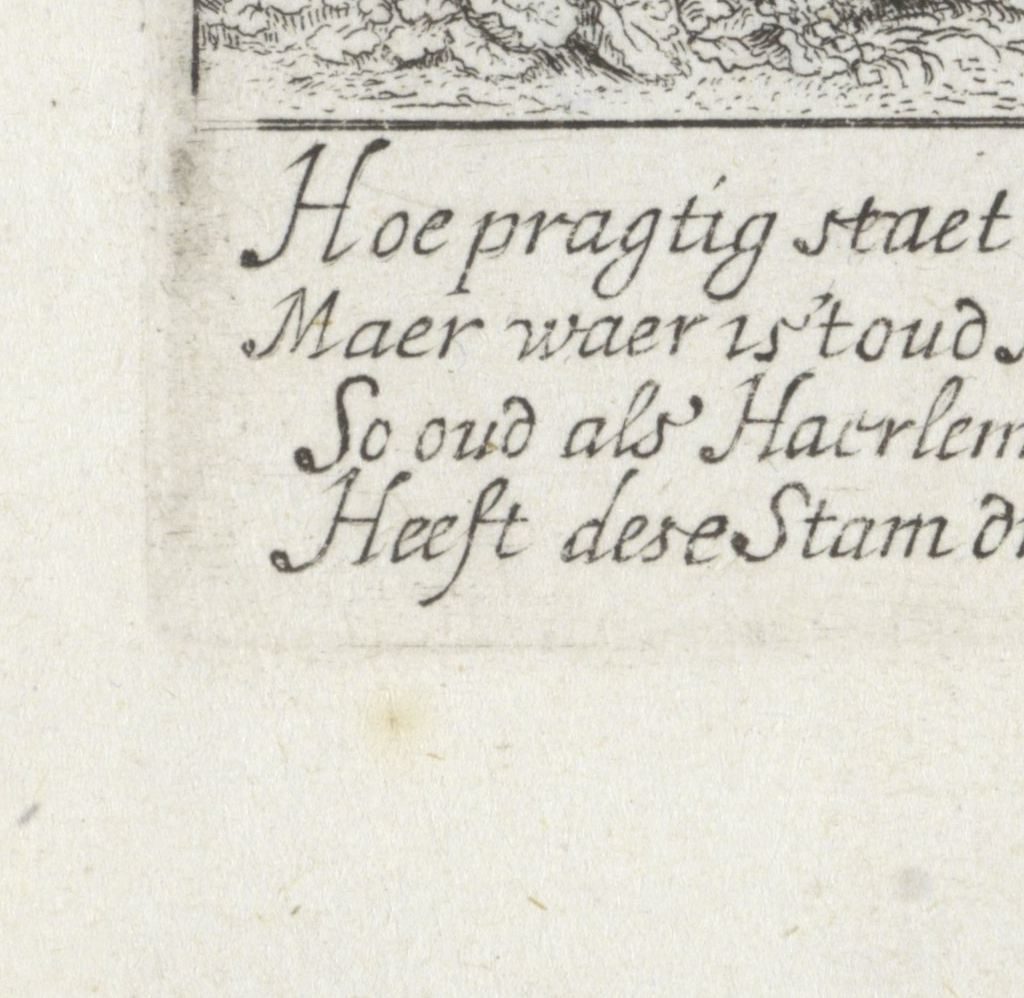 Hoe pragtig staet
Maer waer is 't oud
So oud als Haerlem
Heeft dese Stam